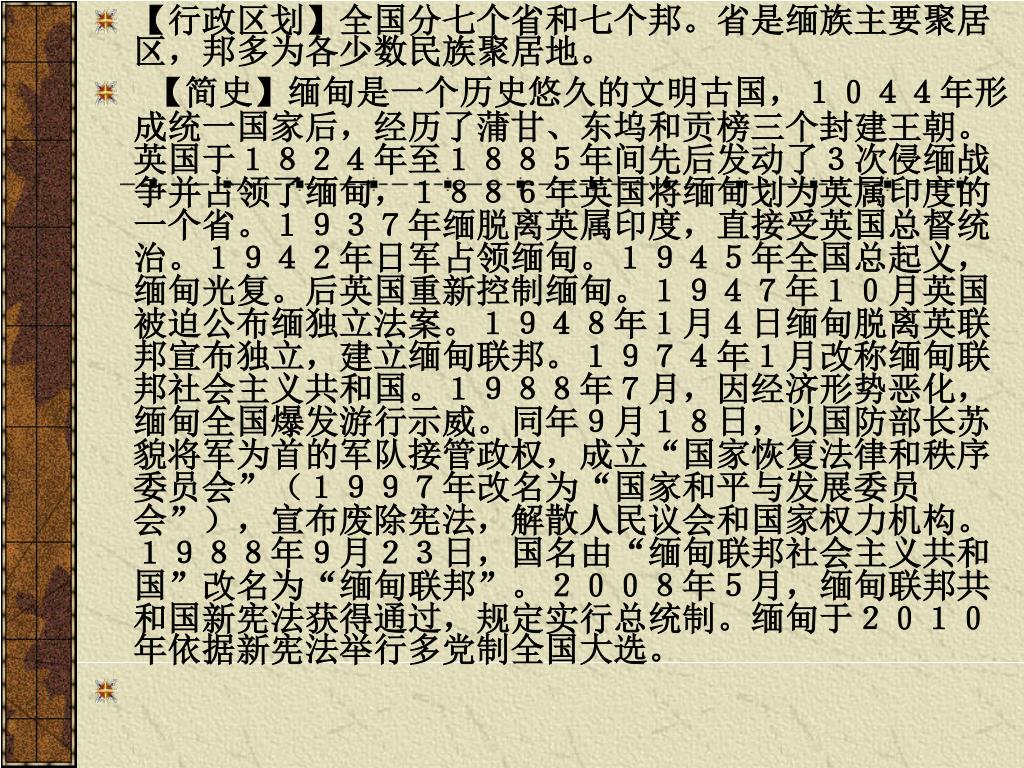 【行政区划】全国分七个省和七个邦。省是缅族主要聚居
区，邦多为各少数民族聚居地。
【简史】缅甸是一个历史悠久的文明古国，１０４４年形
成统一国家后，经历了蒲甘、东坞和贡榜三个封建王朝。
英国于１８２４年至１８８５年间先后发动了３次侵缅战
争并占领了缅甸，１８８６年英国将缅甸划为英属印度的
一个省。１９３７年缅脱离英属印度，直接受英国总督统
治。１９４２年日军占领缅甸。１９４５年全国总起义，
缅甸光复。后英国重新控制缅甸。１９４７年１０月英国
被迫公布缅独立法案。１９４８年１月４日缅甸脱离英联
邦宣布独立，建立缅甸联邦。１９７４年１月改称缅甸联
邦社会主义共和国。１９８８年７月，因经济形势恶化，
缅甸全国爆发游行示威。同年９月１８日，以国防部长苏
貌将军为首的军队接管政权，成立“国家恢复法律和秩序
委员会”（１９９７年改名为“国家和平与发展委员
会”），宣布废除宪法，解散人民议会和国家权力机构。
１９８８年９月２３日，国名由“缅甸联邦社会主义共和
国”改名为“缅甸联邦”。２００８年５月，缅甸联邦共
和国新宪法获得通过，规定实行总统制。缅甸于２０１０
年依据新宪法举行多党制全国大选。